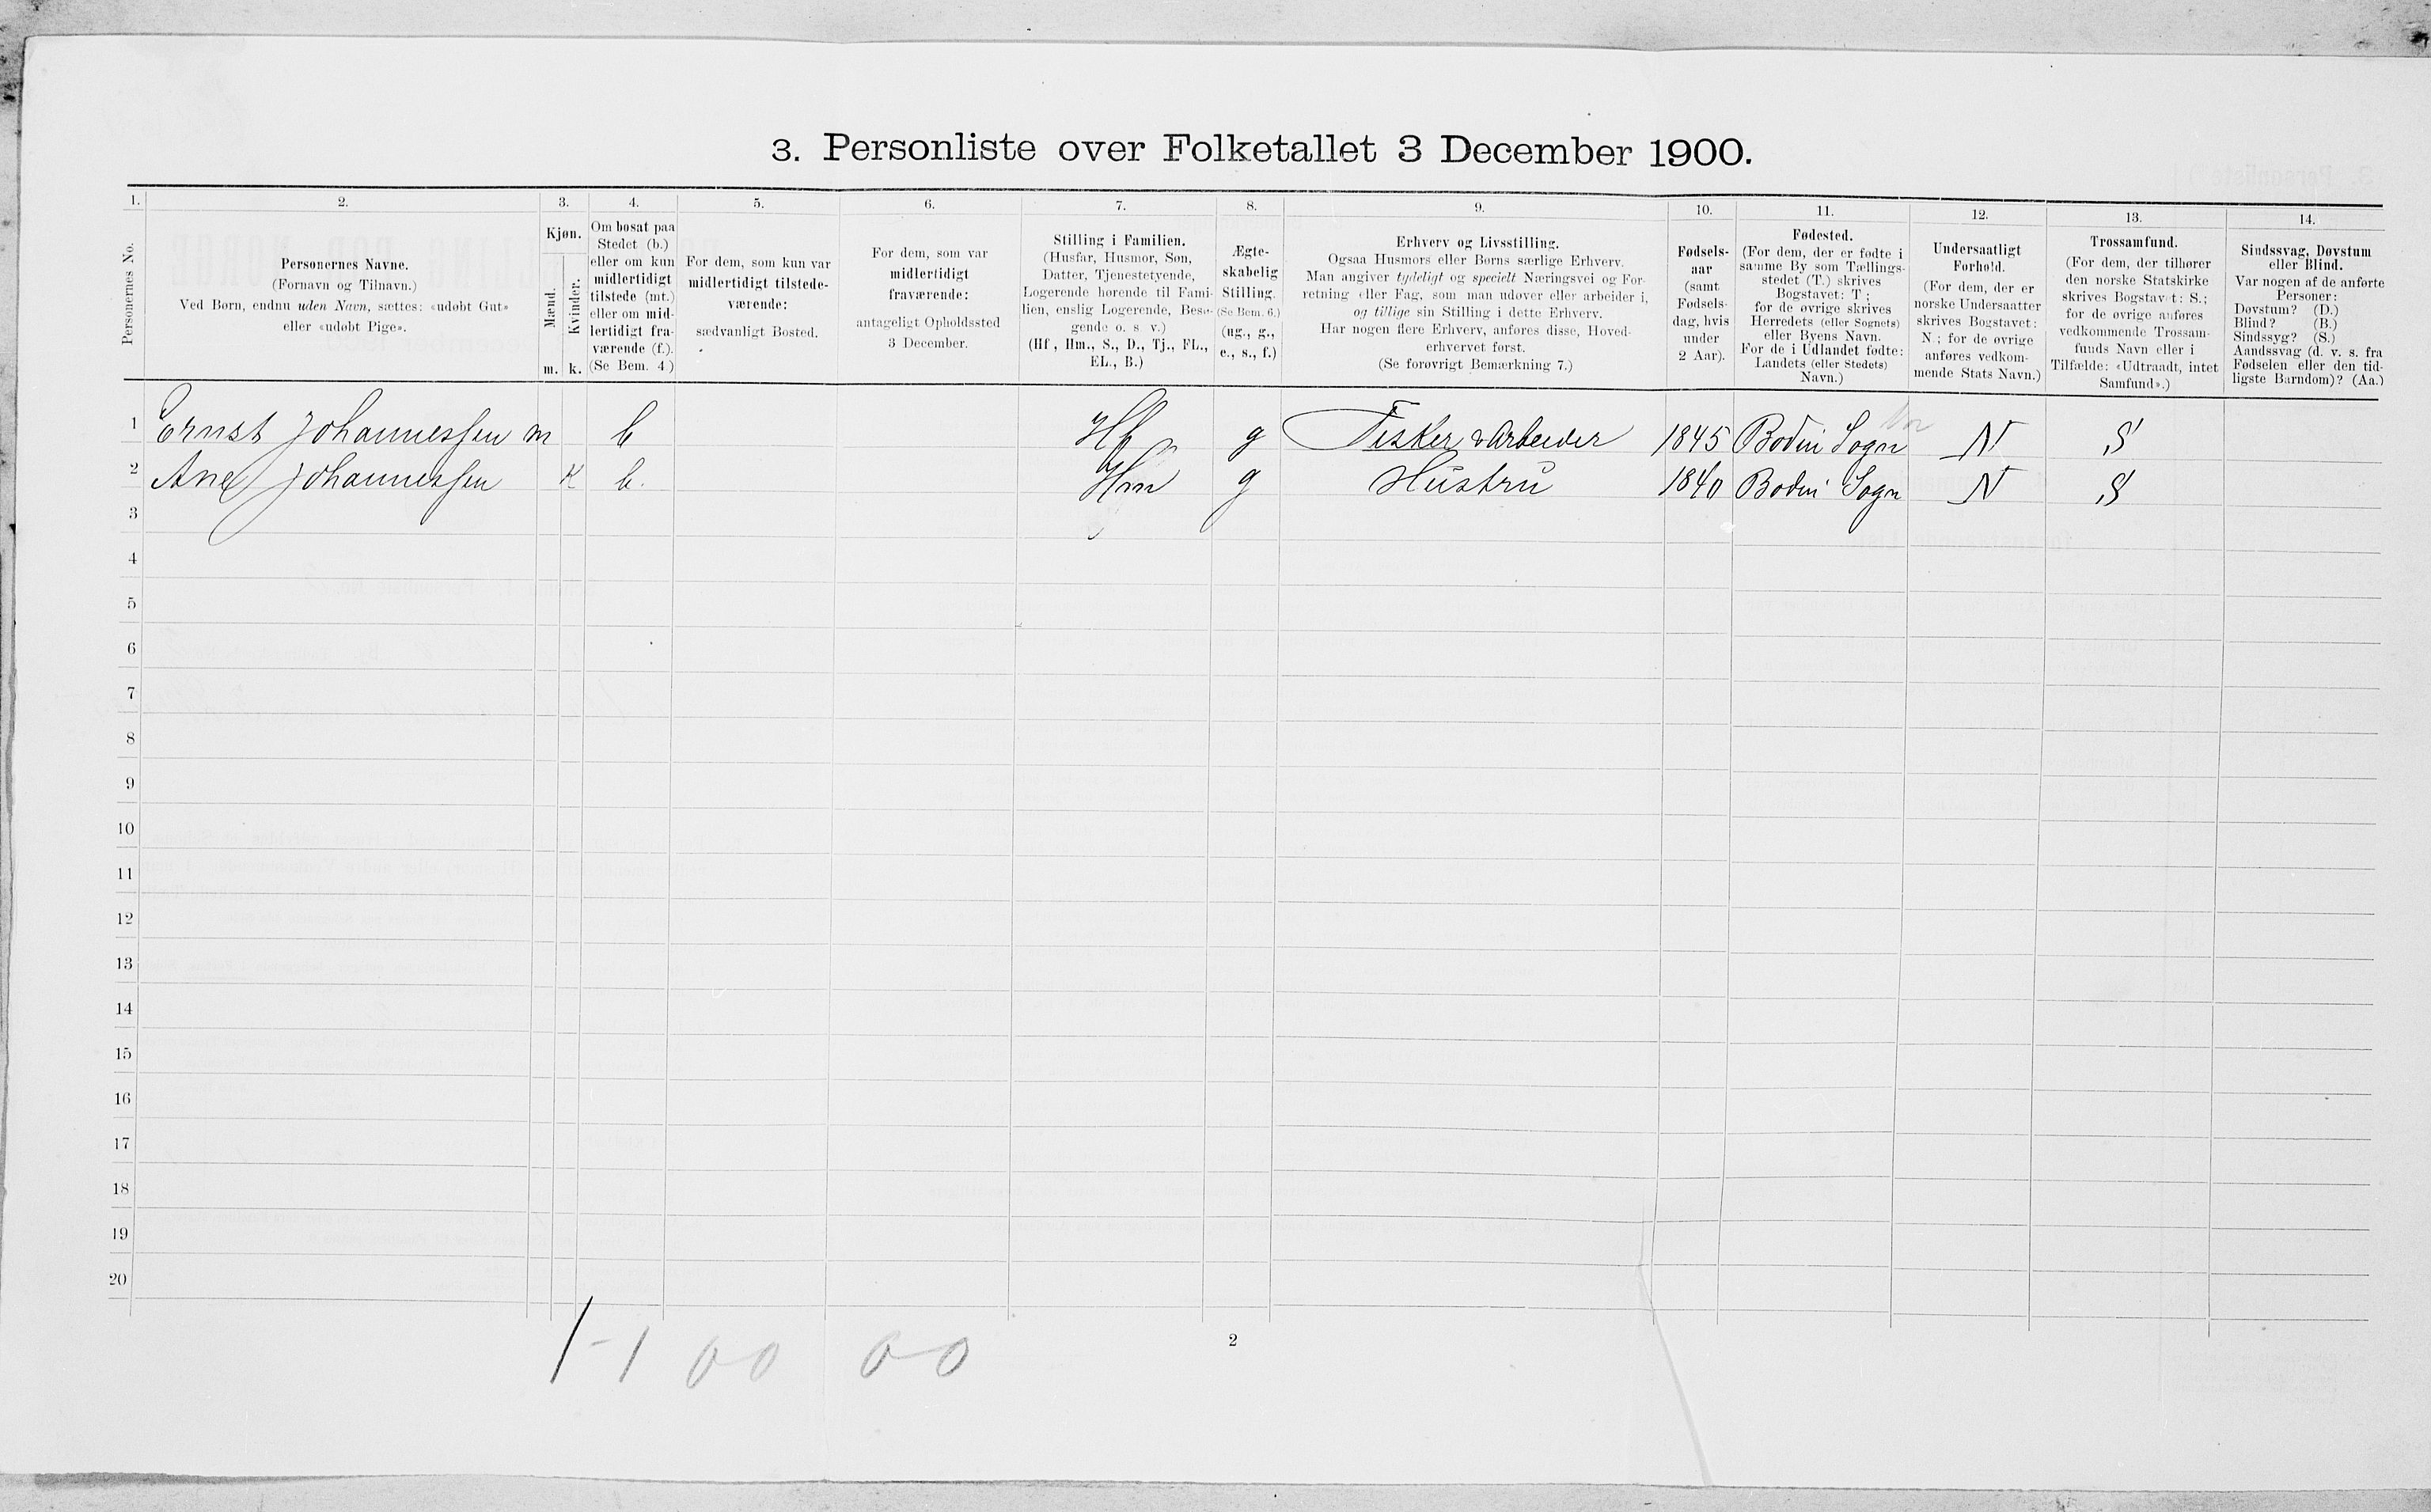 3. Personliste over Folketallet 3 December 1900.
1. 2. 3. 4. 5. 6. 7. 8. 9. 10. 11. 12. 13. 14.
Personernes No.
Personernes Navne.
(Fornavn og Tilnavn.)
Ved Børn, endnu uden Navn, sættes: «udøbt Gut»
eller «udøbt Pige».
Kjøn.
Mænd.
Kvinder.
m. k.
Om bosat paa
Stedet (b.)
eller om kun
midlertidigt
tilstede (mt.)
eller om mid-
lertidigt fra-
værende (f.).
(Se Bem. 4.)
For dem, som kun var
midlertidigt tilstede-
værende:
sædvanligt Bosted.
For dem, som var
midlertidigt
fraværende:
antageligt Opholdssted
3 December.
Stilling i Familien.
(Husfar, Husmor, Søn,
Datter, Tjenestetyende,
Logerende hørende til Fami-
lien, enslig Logerende, Besø-
gende o. s. v.)
(Hf., Hm., S., D., Tj., FL.,
EL., B.)
Ægte-
skabelig
Stilling.
(Se Bem. 6.)
(ug., g.,
e., s., f.)
Erhverv og Livsstilling.
Ogsaa Husmors eller Børns særlige Erhverv.
Man angiver tydeligt og specielt Næringsvei og For-
retning eller Fag, som man udøver eller arbeider i,
og tillige sin Stilling i dette Erhverv.
Har nogen flere Erhverv, anføres disse, Hoved-
erhvervet først.
(Se forøvrigt Bemærkning 7.)
Fødsels-
aar
(samt
Fødsels-
dag, hvis
under
2 Aar).
Fødested.
(For dem, der er fødte i
samme By som Tællings-
stedet (T.) skrives
Bogstavet: T;
for de øvrige skrives
Herredets (eller Sognets)
eller Byens Navn.
For de i Udlandet fødte:
Landets (eller Stedets)
Navn.)
Undersaatligt
Forhold.
(For dem, der er
norske Undersaatter
skrives Bogstavet:
N.; for de øvrige
anføres vedkom-
mende Stats Navn.)
Trossamfund.
(For dem, der tilhører
den norske Statskirke
skrives Bogstavet: S.;
for de øvrige anføres
vedkommende Trossam-
funds Navn eller i
Tilfælde: «Udtraadt, intet
Samfund».)
Sindssvag, Døvstum
eller Blind.
Var nogen af de anførte
Personer:
Døvstum? (D.)
Blind? (B.)
Sindssyg? (S.)
Aandssvag (d. v. s. fra
Fødselen eller den tid-
ligste Barndom)? (Aa.)
1 Ernst Johannessen m b Hf g Fisker & Arbeider 1845 Bodin Sogn N S
2 Ane Johannessen K b. Hm g Hustru 1840 Bodin Sogn N S
3
4
5
6
7
8
9
10
11
12
13
14
15
16
17
18
19
20
1-1 00 00
2